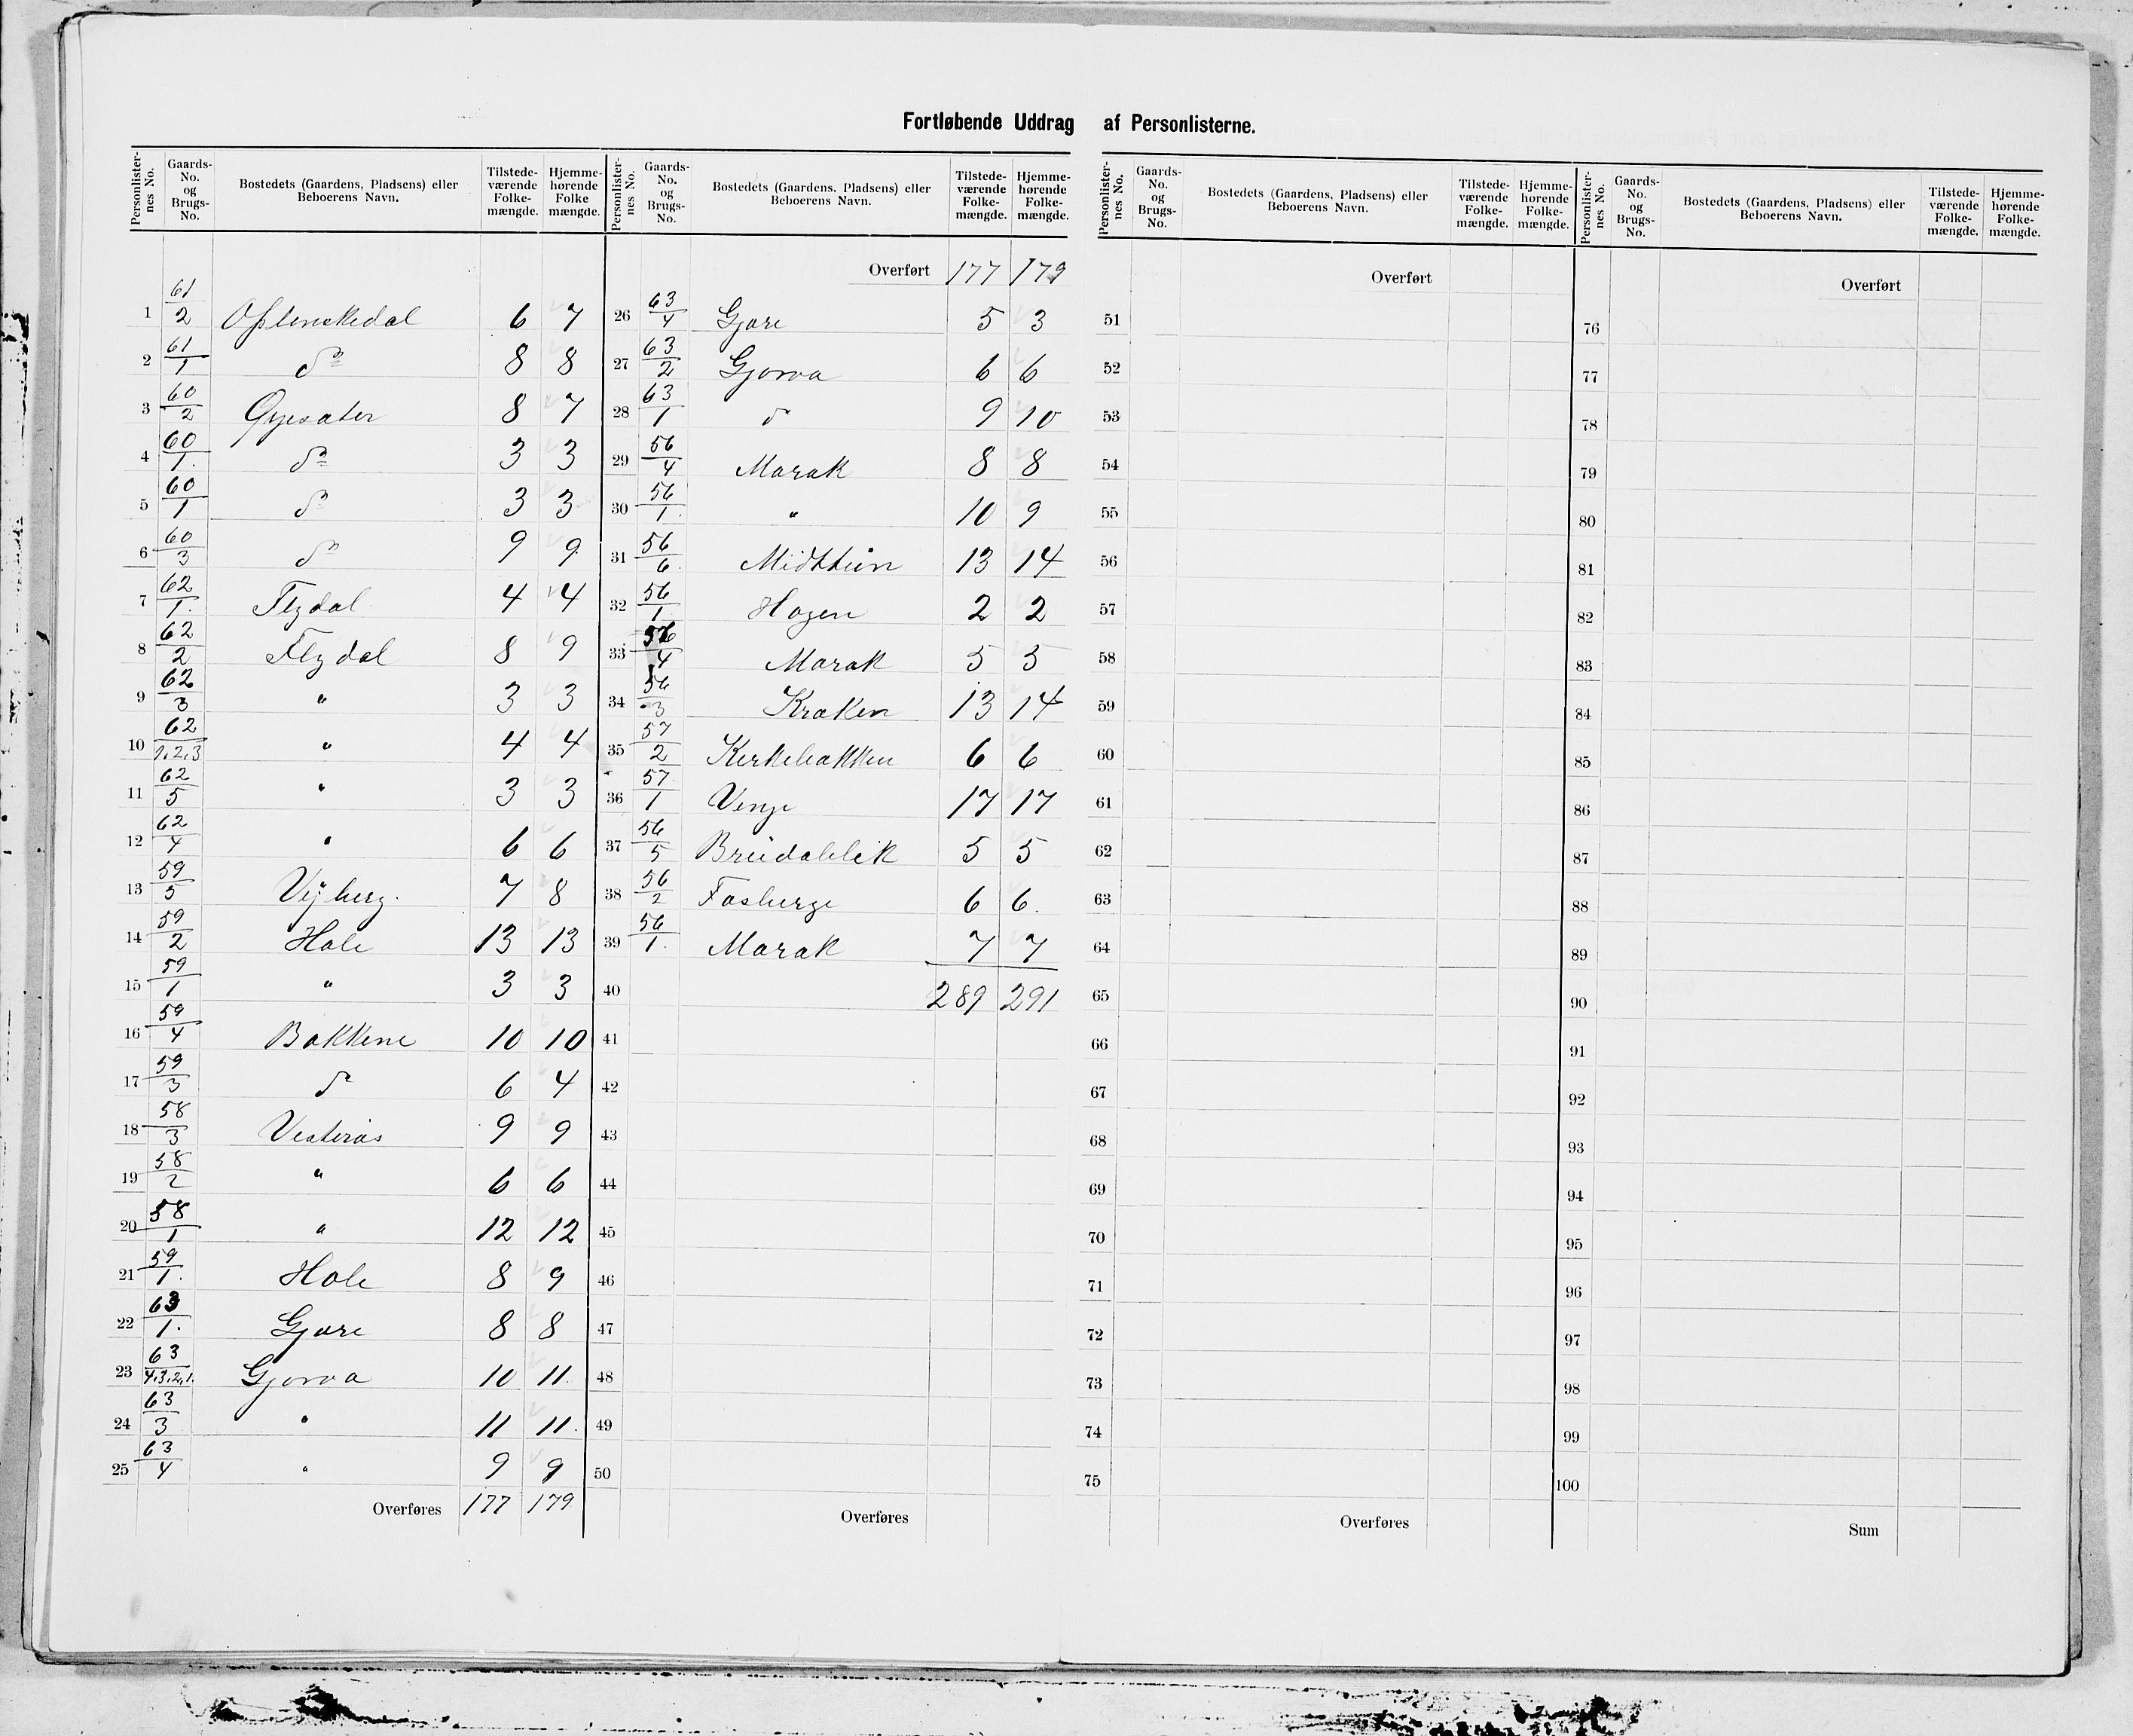 Fortløbende Uddrag af Personlisterne.
Personlisternes No. | Gaards-No. og Brugs-No. | Bostedets (Gaardens, Pladsens) eller Beboerens Navn. | Tilstedeværende Folkemængde. | Hjemmehørende Folkemængde.
1 61/2 Opslenskedal 6 7
2 61/1 do 8 8
3 60/2 Ørjesæter 8 7
4 60/1. do 3 3
5 60/1 do 3 3
6 60/3 do 9 9
7 62/1. Flydal 4 4
8 62/2 Flydal 8 9
9 62/3 " 3 3
10 62/1,2,3 " 4 4
11 62/5 " 3 3
12 62/4 " 6 6
13 59/5 Vijberg. 7 8
14 59/2 Hole 13 13
15 59/1 " 3 3
16 59/4 Bakkene 10 10
17 59/3 do 6 4
18 58/3 Vesterås 9 9
19 58/2 " 6 6
20 58/1 " 12 12
21 59/1. Hole 8 9
22 63/1. Gjøre 8 8
23 63/4,3,2,1. Gjørva 10 11.
24 63/3 " 11 11.
25 63/4 " 9 9
Overføres 177 179
Overført 177 179
26 63/4 Gjøre 5 3
27 63/2 Gjørva 6 6
28 63/1 do 9 10
29 56/4 Marak 8 8
30 56/1. " 10 9
31 56/6. Midttun 13 14
32 56/1. Hagen 2 2
33 56/4 Marak 5 5
34 56/3 Kraken 13 14
35 57/2 Kirkebakken 6 6
36 57/1 Venje 17 17
37 56/5 Brudableik 5 5
38 56/2 Fosberge 6 6.
39 56/1. Marak 7 7
40 289 291
41
42
43
44
45
46
47
48
49
50
Overføres
Personlisternes No. | Gaards-No. og Brugs-No. | Bostedets (Gaardens, Pladsens) eller Beboerens Navn. | Tilstedeværende Folkemængde. | Hjemmehørende Folkemængde.
Overført
51
52
53
54
55
56
57
58
59
60
61
62
63
64
65
66
67
68
69
70
71
72
73
74
75
Overføres
Overført
76
77
78
79
80
81
82
83
84
85
86
87
88
89
90
91
92
93
94
95
96
97
98
99
100
Sum